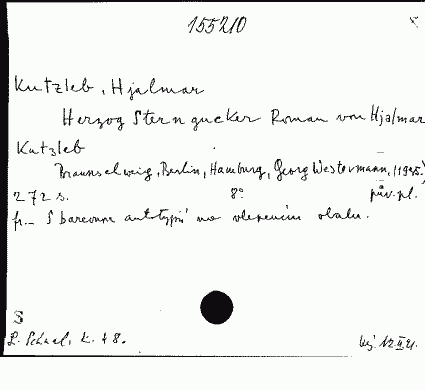 155210
Kutzleb, Hjalmar
Herzog Sterngucker Roman von Hjalmar
Kutzleb
Braunschweig, Berlin, Hamburg, Georg Westermann,
272 s. 8° pův. pl.
fr. - S barevnou autotypií na vlepeném obalu.
S
k. 48.